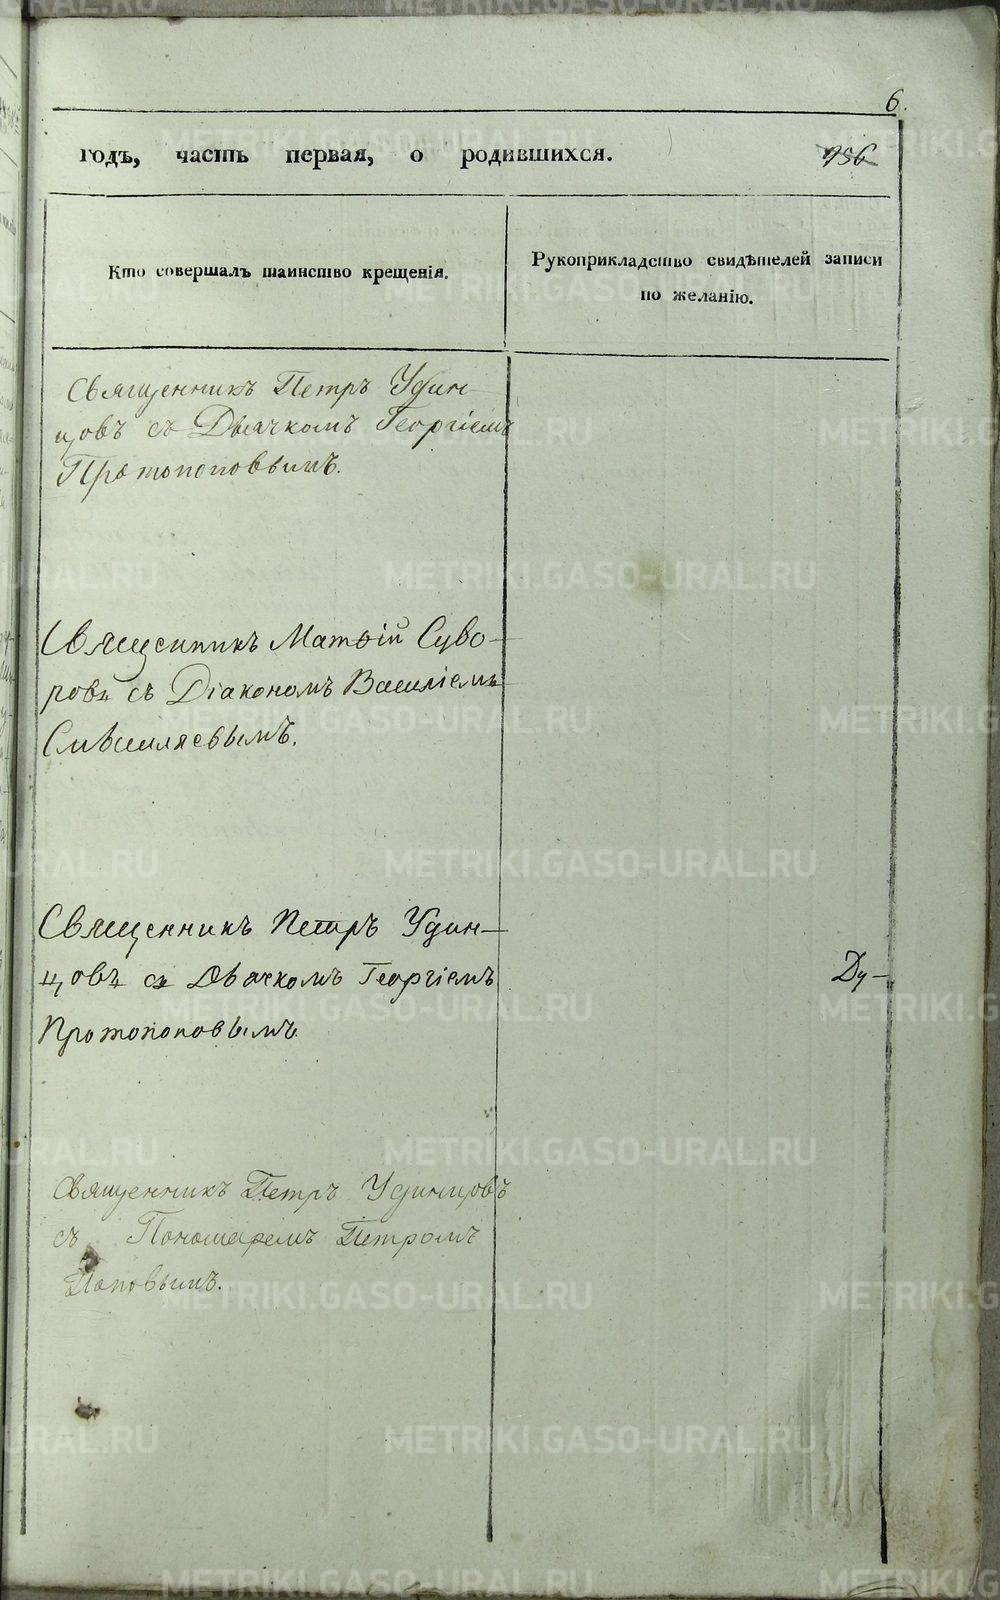 6.
годъ, часть первая, о родившихся. 956
Кто совершалъ таинство крещенія.
Рукоприкладство свидѣтелей записи
по желанію.
Священникъ Петръ Удин-
цовъ съ Дьячкомъ Георгіемъ
Протопоповымъ.
Священникъ Матѳій Суво-
ровъ съ Діакономъ Василіемъ
Смѣшляевымъ.
Священникъ Петръ Удин-
цовъ съ Дьячкомъ Георгіемъ
Протопоповымъ
Ду-
Священникъ Петръ Удинцовъ
съ Пономаремъ Петромъ
Поповымъ.
METRIKI.GASO-URAL.RU